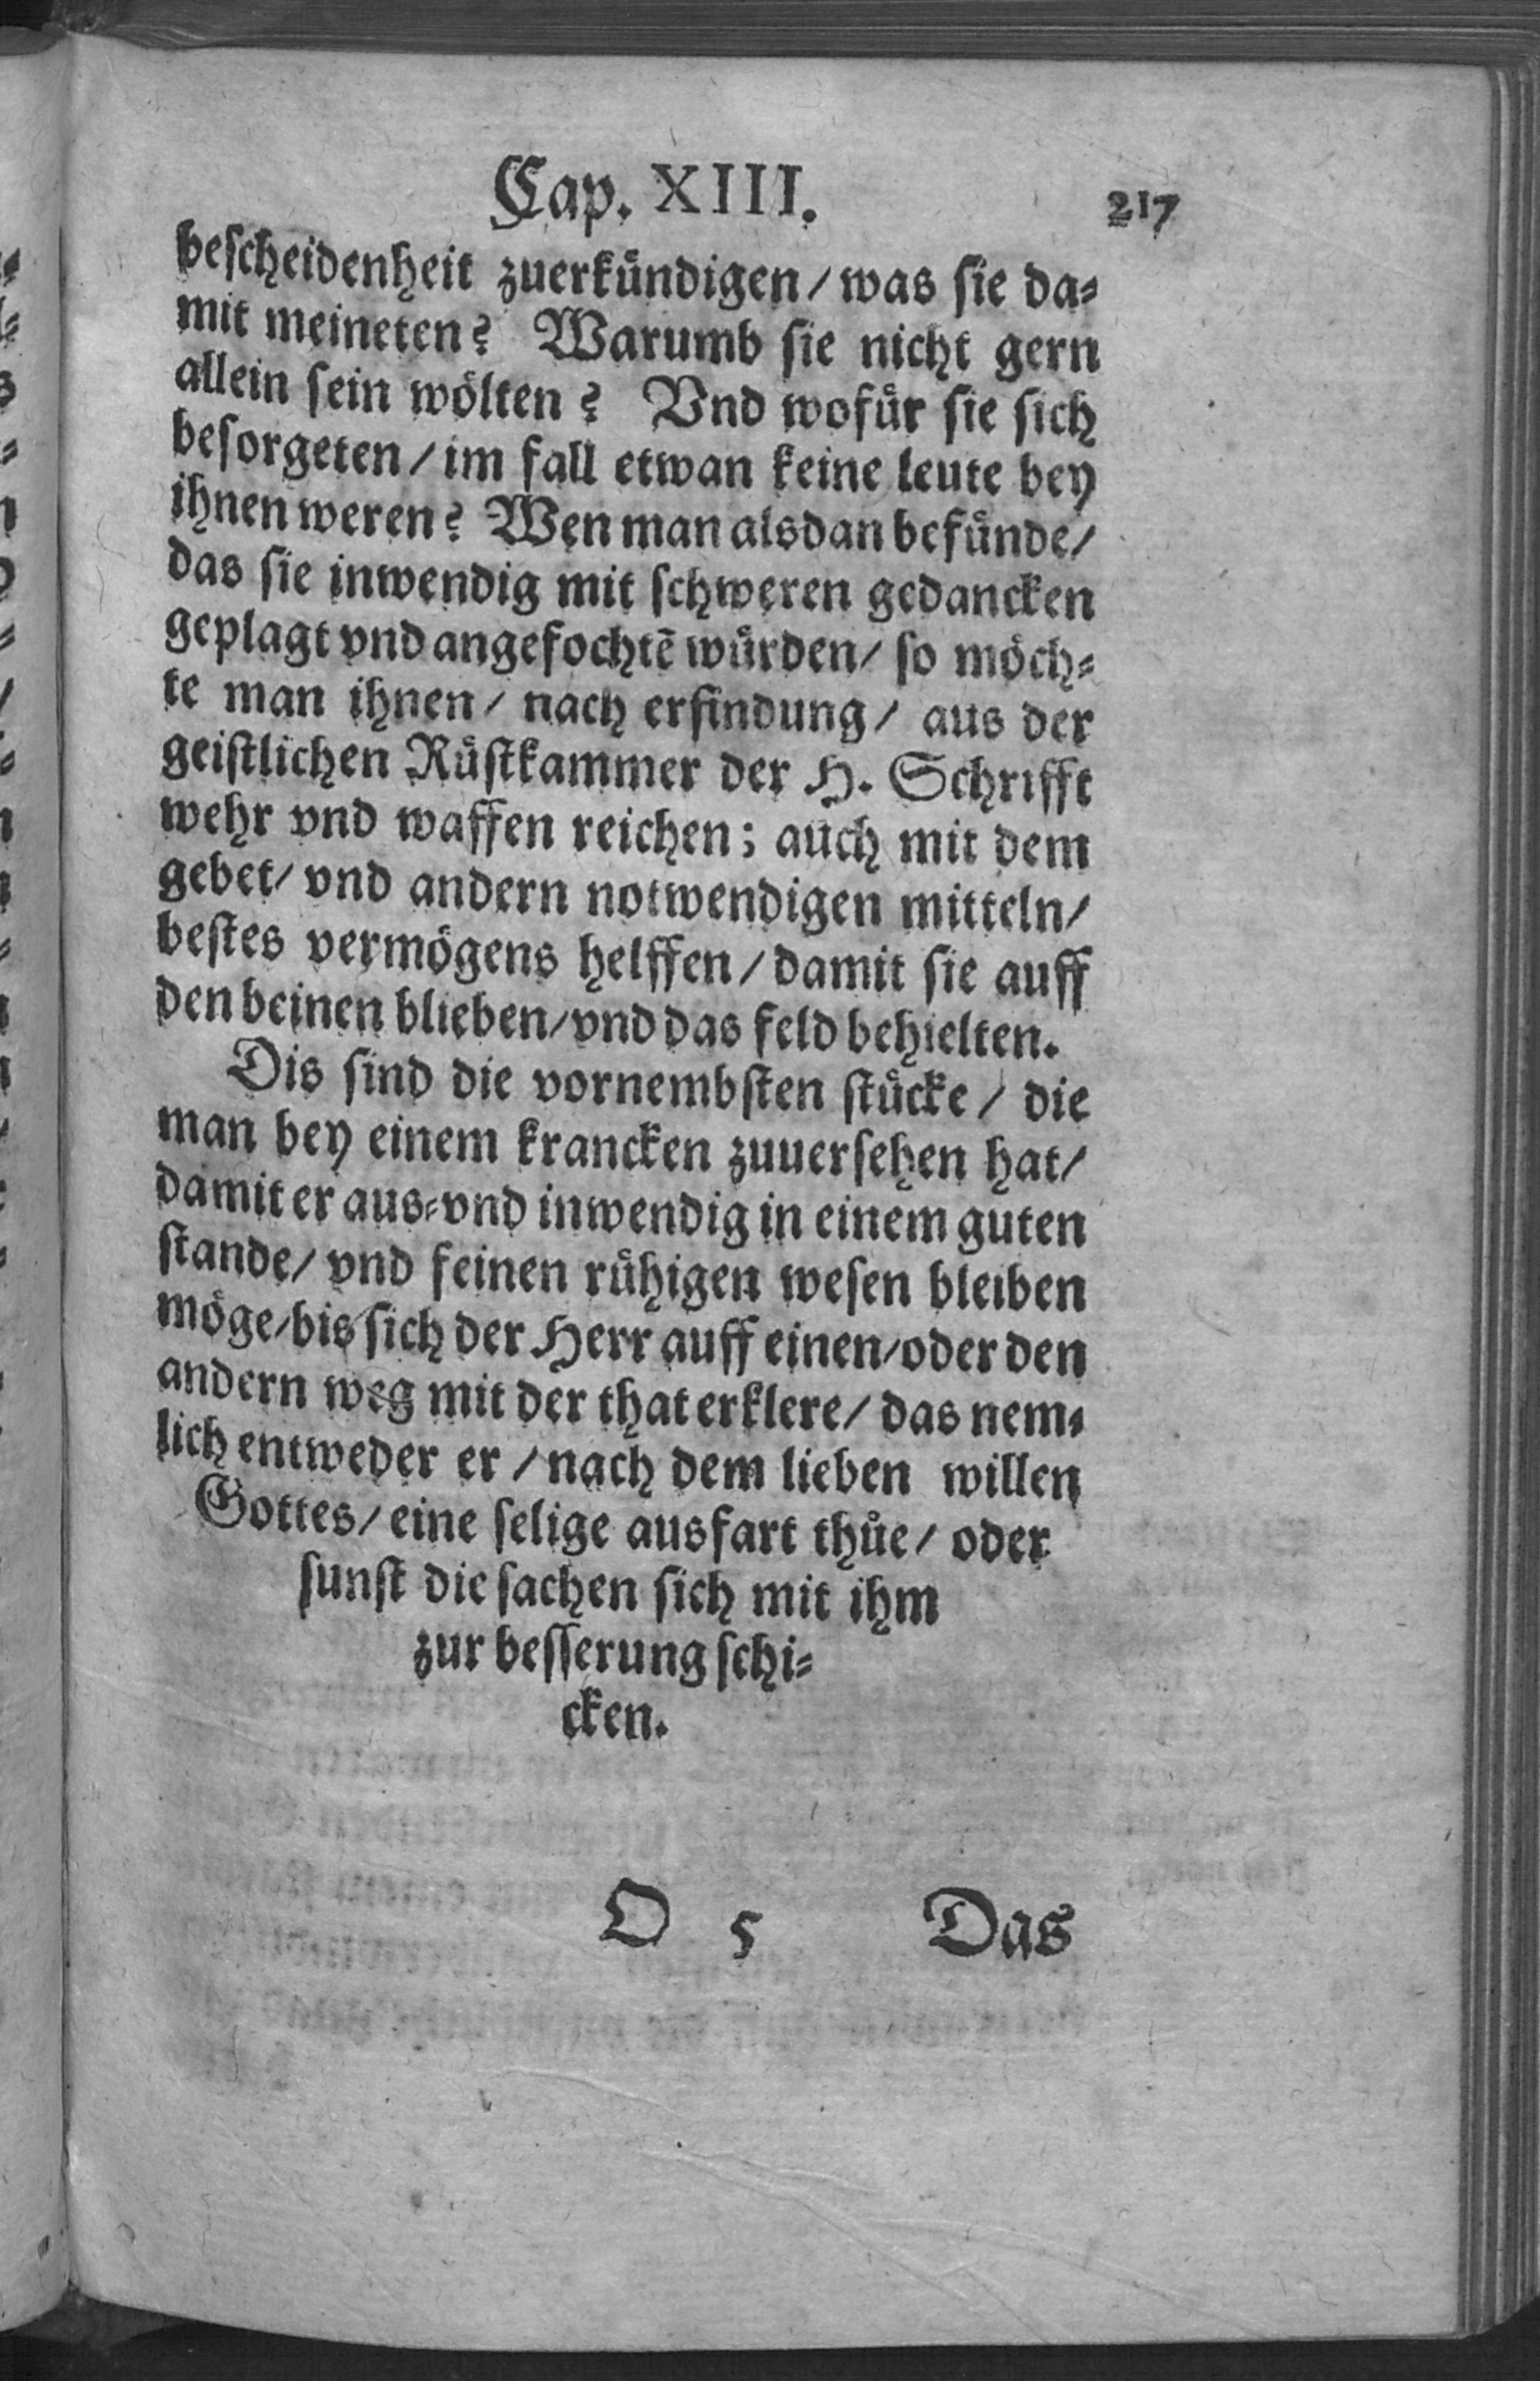 Cap. XIII. 217
bescheidenheit zuerkündigen/ was sie da⸗
mit meineten? Warumb sie nicht gern
allein sein wölten? Vnd wofür sie sich
besorgeten/ im fall etwan keine leute bey
ihnen weren? Wen man alsdan befünde/
das sie inwendig mit schweren gedancken
geplagt vnd angefochtē würden/ so möch⸗
te man ihnen/ nach erfindung/ aus der
geistlichen Rüstkammer der H. Schrifft
wehr vnd waffen reichen; auch mit dem
gebet/ vnd andern notwendigen mitteln/
bestes vermögens helffen/ damit sie auff
den beinen blieben/ vnd das feld behielten.
Dis sind die vornembsten stücke/ die
man bey einem krancken zuuersehen hat/
damit er aus⸗vnd inwendig in einem guten
stande/ vnd feinen rühigen wesen bleiben
möge/ bis sich der Herr auff einen/ oder den
andern weg mit der that erklere/ das nem⸗
lich entweder er/ nach dem lieben willen
Gottes/ eine selige ausfart thüe/ oder
sunst die sachen sich mit ihm
zur besserung schi⸗
cken.
O 5 Das